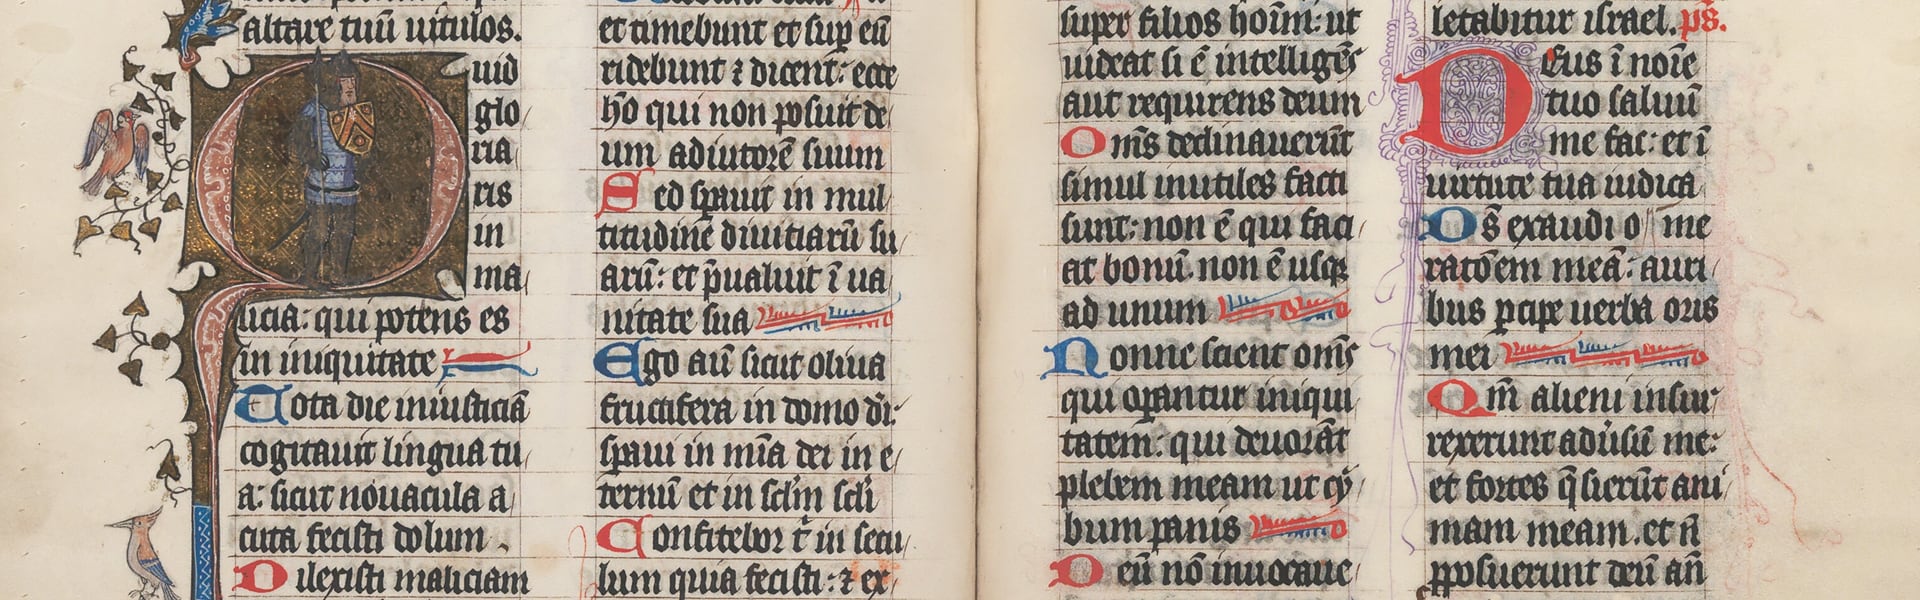 altare tuū uitulos.
Quid
glo
ria
ris
in
ma
licia: qui potens es
in iniquitate
Tota die iniusticiā
cogitauit lingua tu
a: sicut nouacula a
cuta fecisti dolum
Dilexisti maliciam
et timebunt et sup eū
ridebunt ⁊ dicent: ecce
hō qui non posuit de
um adiutorē suum
Sed sperauit in mul
titudinē diuitiarū su
arū: et p̄ualuit ī ua
nitate sua
Ego aū sicut oliua
fructifera in domo dī:
speraui in mīa dei in e
ternū et in sclm̄ scli
Confitebor t̄ in secu
lum quia fecisti: ⁊ ex
super filios hoīm: ut
uideat si ē intelligēs
aut requirens deum
Om̄s declinauerūt
simul inutiles facti
sunt: non ē qui faci
at bonū. non ē usq
ad unum
Nonne scient om̄s
qui operantur iniqui
tatem: qui deuorāt
plebem meam ut cy
bum panis
Deū nō inuocaue
letabitur israel. ps̄.
Deus ī noīe
tuo saluū
me fac: et ī
uirtute tua iudica
Ds̄ exaudi o me
ratōem meā: auri
bus pcipe uerba oris
mei
Qm̄ alieni insur
rexerunt aduersū me:
et fortes q̄sierūt ani
mam meam. et n̄
pposuerunt deū an̄